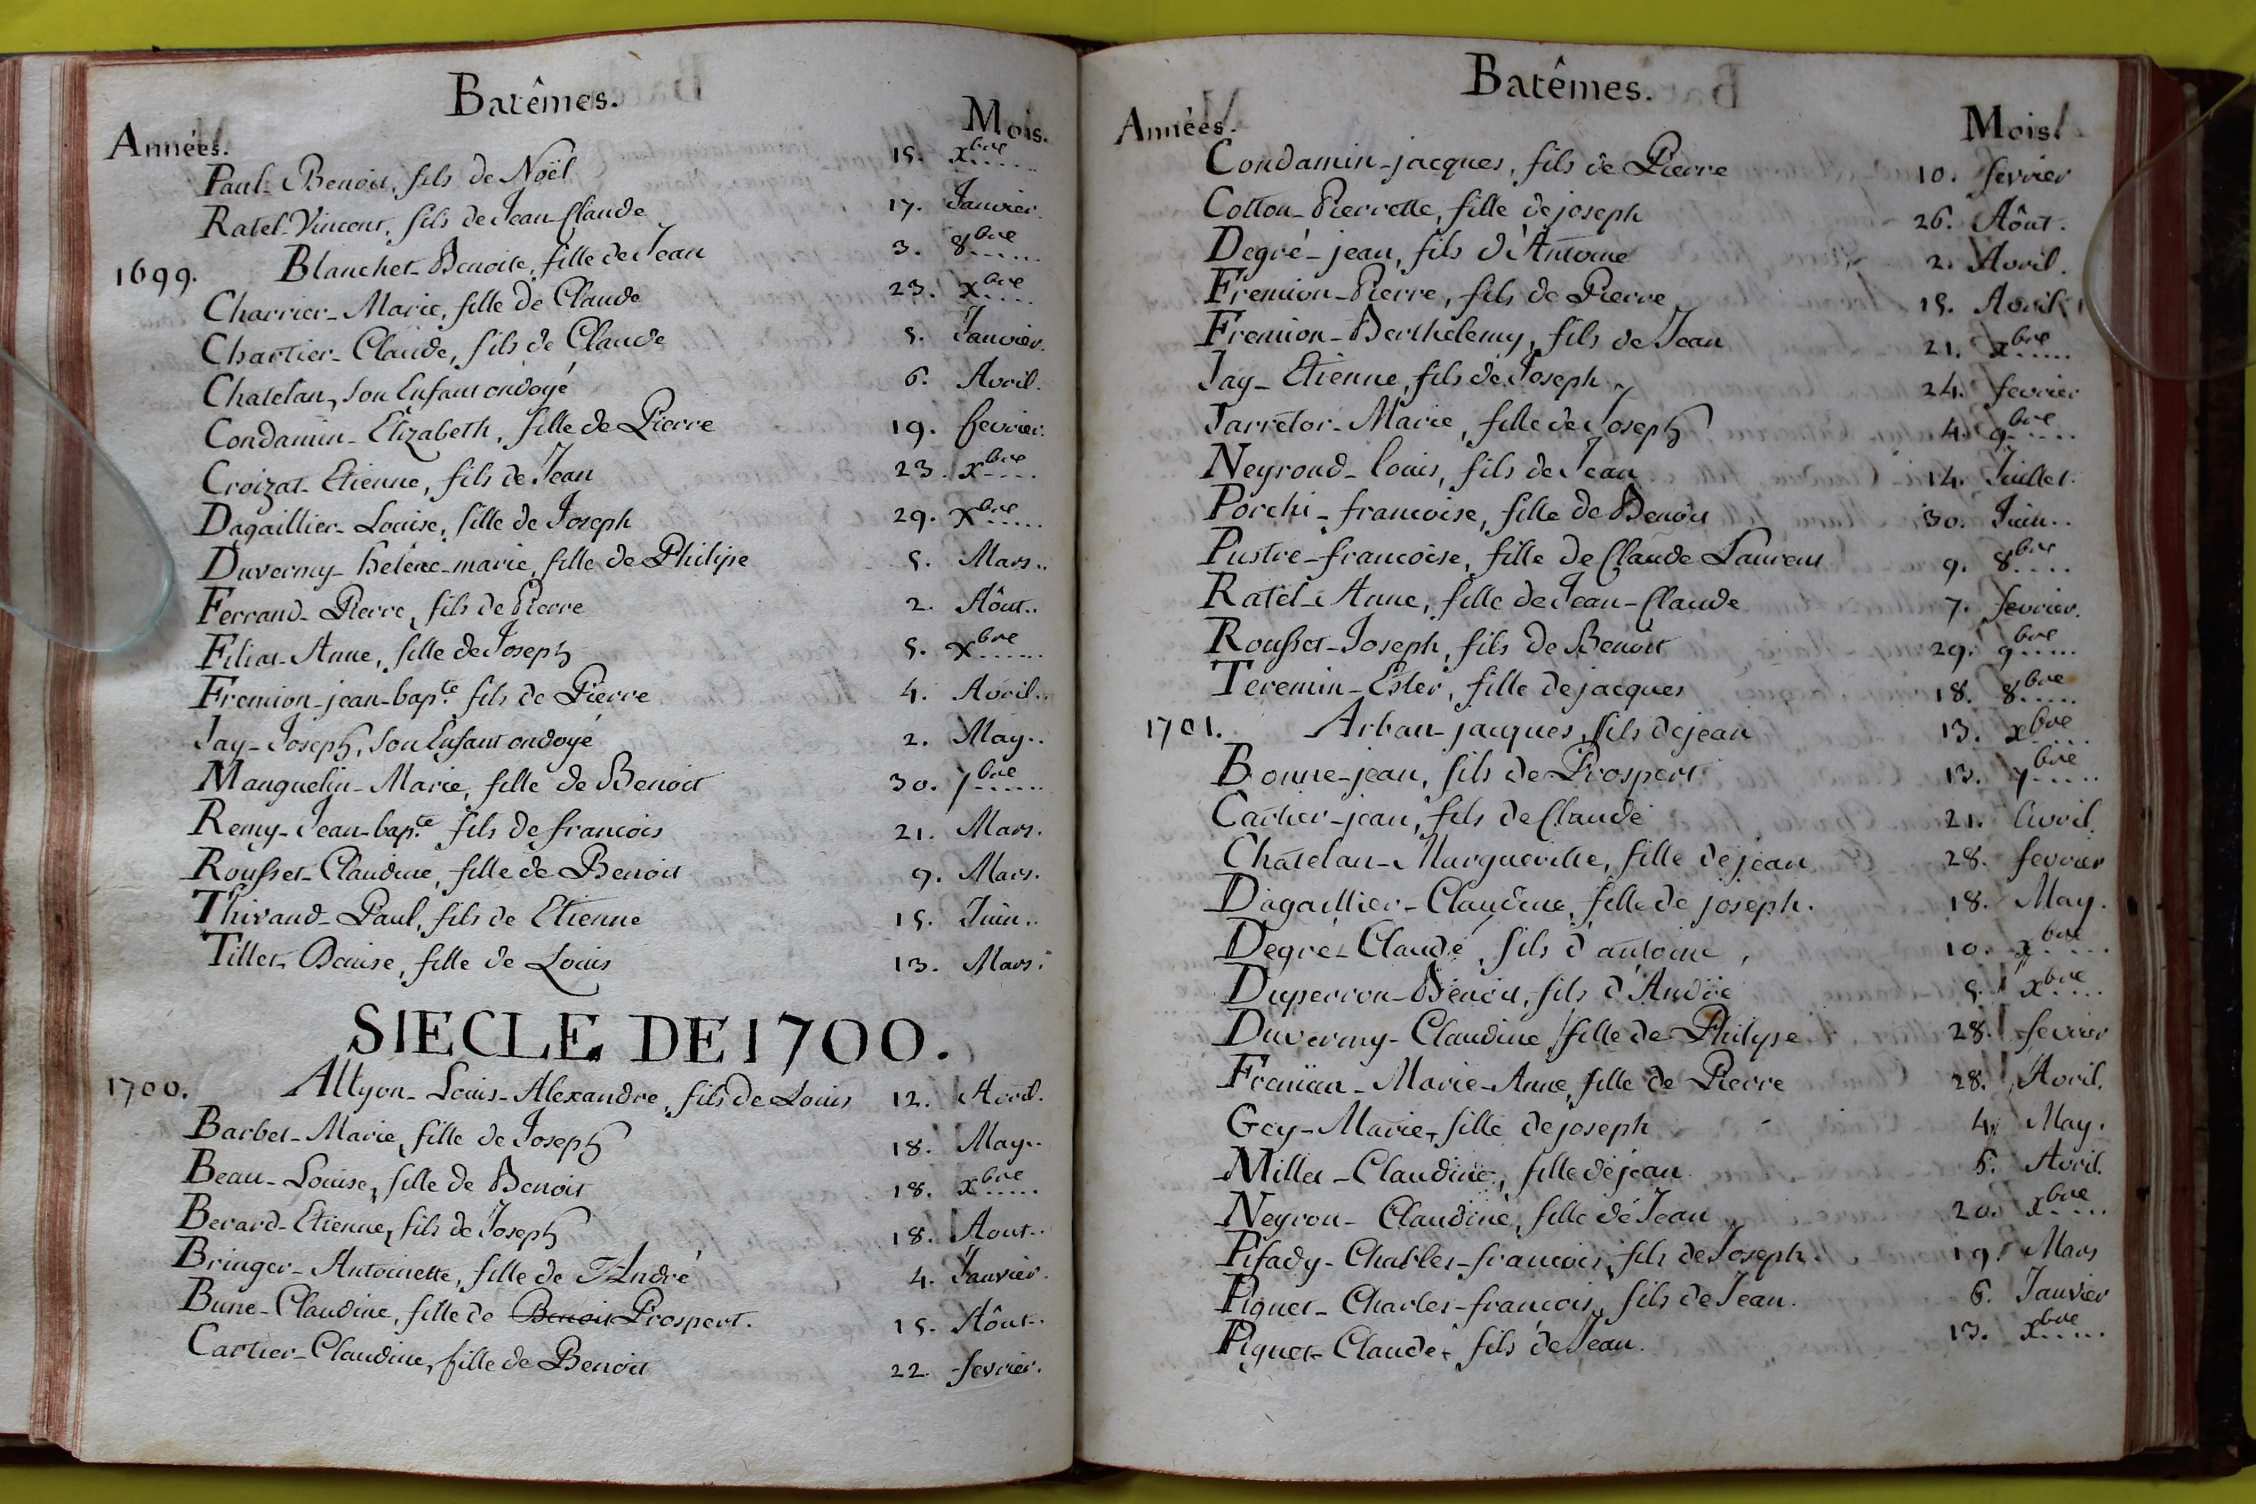 Batêmes.
Années. Mois.
Paul-Benoit, fils de Noël 15. xbre
Ratel-Vincent, fils de Jean-Claude 17. Janvier.
1699. Blanchet-Benoite, fille de Jean 3. 8bre
Charrier-Marie, fille de Claude 23. xbre
Chartier-Claude, fils de Claude 5. Janvier.
Chatelan, son Enfant ondoyé 6. Avril.
Condamin-Elizabeth, fille de Pierre 19. fevrier.
Croizat-Etienne, fils de Jean 23. xbre
Dagaillier-Louise, fille de Joseph 29. xbre
Duvermy-helene-marie, fille de Philipe 5. Mars..
Ferrand-Pierre, fils de Pierre 2. Aôut..
Filiat-Anne, fille de Joseph 5. xbre
Fremion-jean-bapte. fils de Pierre 4. Avril..
Jay-Joseph, son Enfant ondoyé 2. May..
Manguelin-Marie, fille de Benoit 30. 7bre
Remy-Jean-bapte. fils de francois 21. Mars.
Rousset-Claudine, fille de Benoit 9. Mars.
Thivaud-Paul, fils de Etienne 15. Juin..
Tillet-Denise, fille de Louis 13. Mars.
SIECLE DE 1700.
1700. Allyon-Louis-Alexandre, fils de Louis 12. Avril.
Barbet-Marie, fille de Joseph 18. May..
Beau-Louise, fille de Benoit 18. xbre
Berard-Etienne, fils de Joseph 18. Aout..
Bringer-Antoinette, fille de André 4. Janvier.
Bune-Claudine, fille de Benoit Prospert. 15. Aôut..
Cartier-Claudine, fille de Benoit 22. fevrier.
Batêmes.
Années. Mois.
Condamin-jacques, fils de Pierre 10. fevrier
Cotton-Pierrette, fille de joseph 26. Aôut.
Degré-jean, fils d'Antoine 2. Avril.
Fremion-Pierre, fils de Pierre 15. Avril
Fremion-Berthelemy, fils de Jean 21. xbre
Jay-Etienne, fils de Joseph 24. fevrier
Jarretor-Marie, fille de Joseph 4. 9bre
Neyroud-louis, fils de Jean 14. Juillet.
Porchi-francoise, fille de Benoit 30. Juin..
Pustre-francoise, fille de Claude Laurens 9. 8bre
Ratel-Anne, fille de Jean-Claude 7. fevrier.
Rousset-Joseph, fils de Benoit 29. 9bre
Teremin-Ester, fille de jacques 18. 8bre
1701. Arban-jacques, fils de jean 13. xbre
Bonne-jean, fils de Prospert 13. 7bre
Cartier-jean, fils de Claude 21. Avril.
Chatelan-Margueritte, fille de jean 28. fevrier
Dagaillier-Claudine, fille de joseph. 18. May.
Degré-Claude, fils d'antoine 10. xbre
Duperron-Benoit, fils d'André 5. xbre
Duvermy-Claudine, fille de Philipe 28. fevrier
Fremion-Marie-Anne, fille de Pierre 28. Avril.
Gey-Marie, fille de joseph 4. May.
Millet-Claudine, fille de jean 6. Avril.
Neyron-Claudine, fille de Jean 20. xbre
Pifady-Charles-francois, fils de Joseph. 19. Mars
Piquet-Charles-francois, fils de Jean. 6. Janvier
Piquet-Claude, fils de Jean. 13. xbre